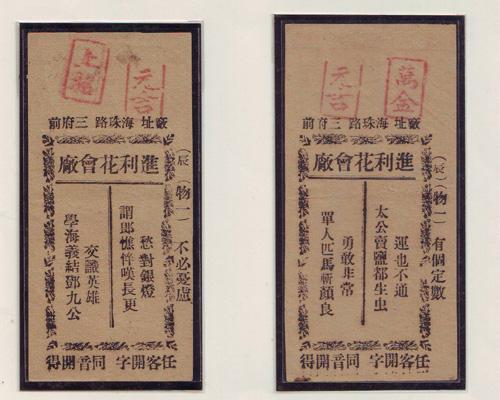 元吉
廠址 海珠路 三府前
進利花會廠
(辰)(物一) 不必憂慮
愁對銀燈
謂郎憔悴嘆長更
交識英雄
學海義結鄧九公
任客開字 同音開得
萬金
元吉
廠址 海珠路 三府前
進利花會廠
(辰)(物一) 有個定數
運也不通
太公賣鹽都生虫
勇敢非常
單人匹馬斬顏良
任客開字 同音開得